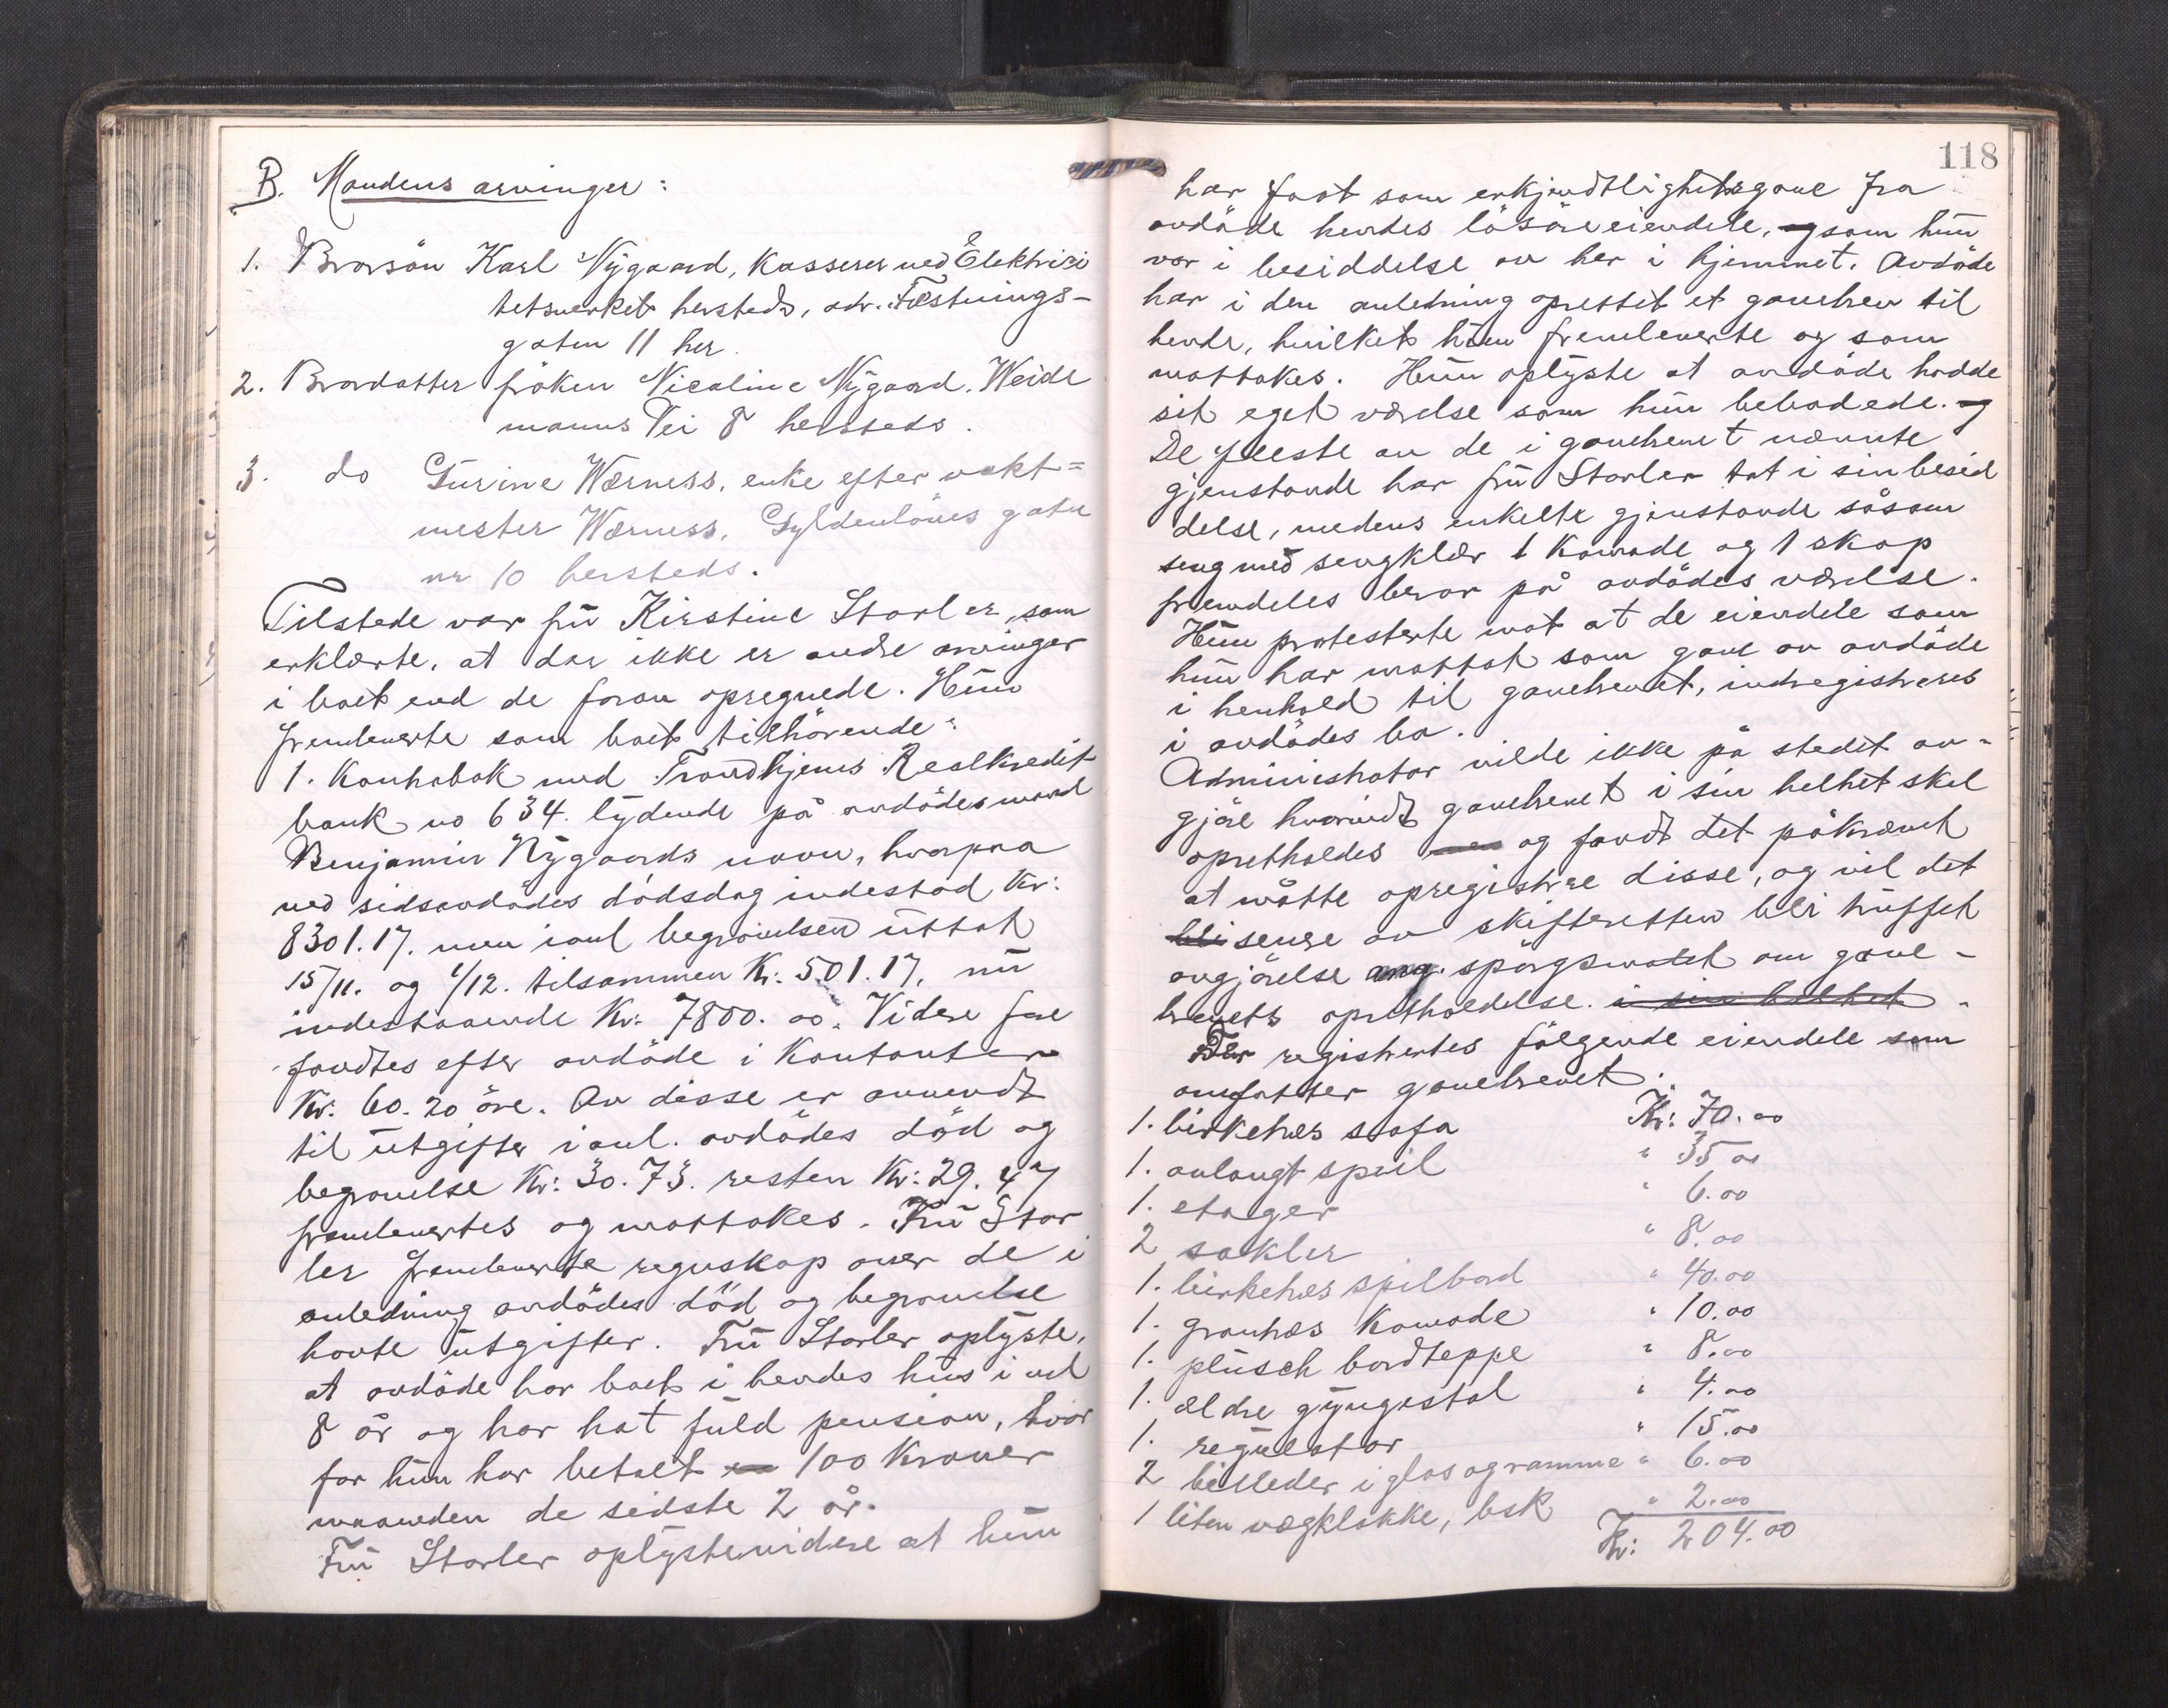 B. Mandens arvinger:
1. Brorsön Karl Nygaard, kasserer ved Elektrizi
tetsverket hersteds, adr. Festnings-
gaten 11 her.
2. Brordatter fröken Nicoline Nygaard. Weide
manns Vei 8 hersteds.
3. do Gurine Værness, enke efter vakt=
mester Værness, Gyldenlöves gate
nr 10 hersteds.
Tilstede var frü Kirstine Starler, som
erklærte, at der ikke er andre arvinger
i boet end de foran opregnede. Hün
fremleverte som boet tilhörende:
1. Kontrabok med Trondhjems Realkredit
bank no 634. lydende på avdödes mand
Benjamin Nygaards navn, hvorpaa
ved sidstavdödes dödsdag indestod Kr:
8301.17. men i anl begravelsen üttat
15/11. og 1/12. tilsammen Kr: 501.17, nü
indestaaende Kr: 7800.00. Videre fore
fandtes efter avdöde i Kontanter
Kr: 60.20 öre. Av disse er anvendt
til ütgifter i anl. avdödes död og
begravelse Kr: 30.73. resten Kr: 29.47
fremlevertes og mottokes. Frü Star
ler fremleverte regnskap over de i
anledning avdödes död og begravelse
havte ütgifter. Frü Starler oplyste,
at avdöde har boet i hendes hüs i vel
8 år og har hat füld pension, hvor
for hün har betalt 100 Kroner
maaneden de sidste 2 år.
Frü Starler oplyste videre at hün
118
har faat som erkjendtlighetsgave fra
avdöde hendes lösöreeiendele, og som hün
var i besiddelse av her i hjemmet. Avdöde
har i den anledning oprettet et gavebrev til
hende, hvilket hün fremleverte og som
mottokes. Hün oplyste at avdöde hadde
sit eget værelse som hün bebodede. og
De fleste av de i gavebrevet nævnte
gjenstande har frü Starler tat i sin besid
delse, medens enkelte gjenstande såsom
seng med sengklær 1 Komode og 1 skap
fremdeles beror på avdödes værelse.
Hün protesterte mot at de eiendele som
hün har mottat som gave av avdöde
i henhold til gavebrevet, indregistreres
i avdödes bo.
Administrator vilde ikke på stedet av-
gjöre hvorvidt gavebrevet i sin helhet skal
opretholdes men og fandt det påkrævet
at måtte opregistrere disse, og vil det
bli senere av skifteretten bli trüffet
avgjörelse ang. spörgsmålet om gave-
brevets opretholdelse. i sin helhet.
Der registrertes fölgende eiendele som
omfatter gavebrevet.
1. birketræs sofa Kr: 70.00
1. avlangt speil " 35 00
1. etager " 6.00
2 sokler " 8.00
1. birketræs spilbord " 40.00
1. grantræs Komode " 10.00
1. plüsch bordteppe " 8.00
1. ældre gyngestol " 4.00
1. regülator " 15.00
2 billeder i glas og ramme " 6.00
1 liten vægklokke, bsk " 2.00
Kr: 204.00